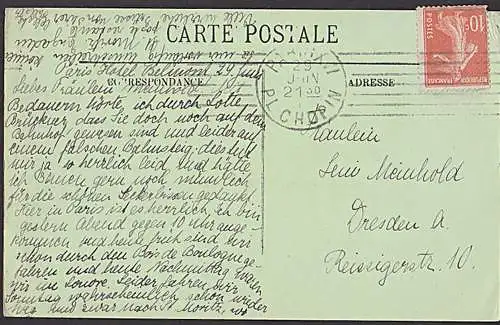 CARTE POSTALE
CORRESPONDANCE
ADRESSE
Paris Hotel Belmont, 29. Juni
Liebes Fräulein Meinhold, mit
Bedauern hörte ich durch Lotte
dass Sie doch noch auf dem
Bahnhof gewesen sind und leider an
einem falschen Bahnsteig, dies tut
mir ja so herrlich leid und hätte
ich Ihnen gern noch mündlich
für die schönen Leckerbissen gedankt.
Hier in Paris ist es herrlich, ich bin
gestern Abend gegen 10 Uhr ange-
kommen und heute früh sind wir
schon durch den Bois de Boulogne ge-
fahren und heute Nachmittag
ins Louvre. Leider fahren wir
Sonntag wahrscheinlich schon wieder
weg und zwar nach St. Moritz, wo
PARIS
JUIN
21 30
PL. CHOPIN
REPUBLIQUE FRANÇAISE
POSTES
10c
Fräulein
Leni Meinhold
Dresden A.
Reissigerstr. 10.